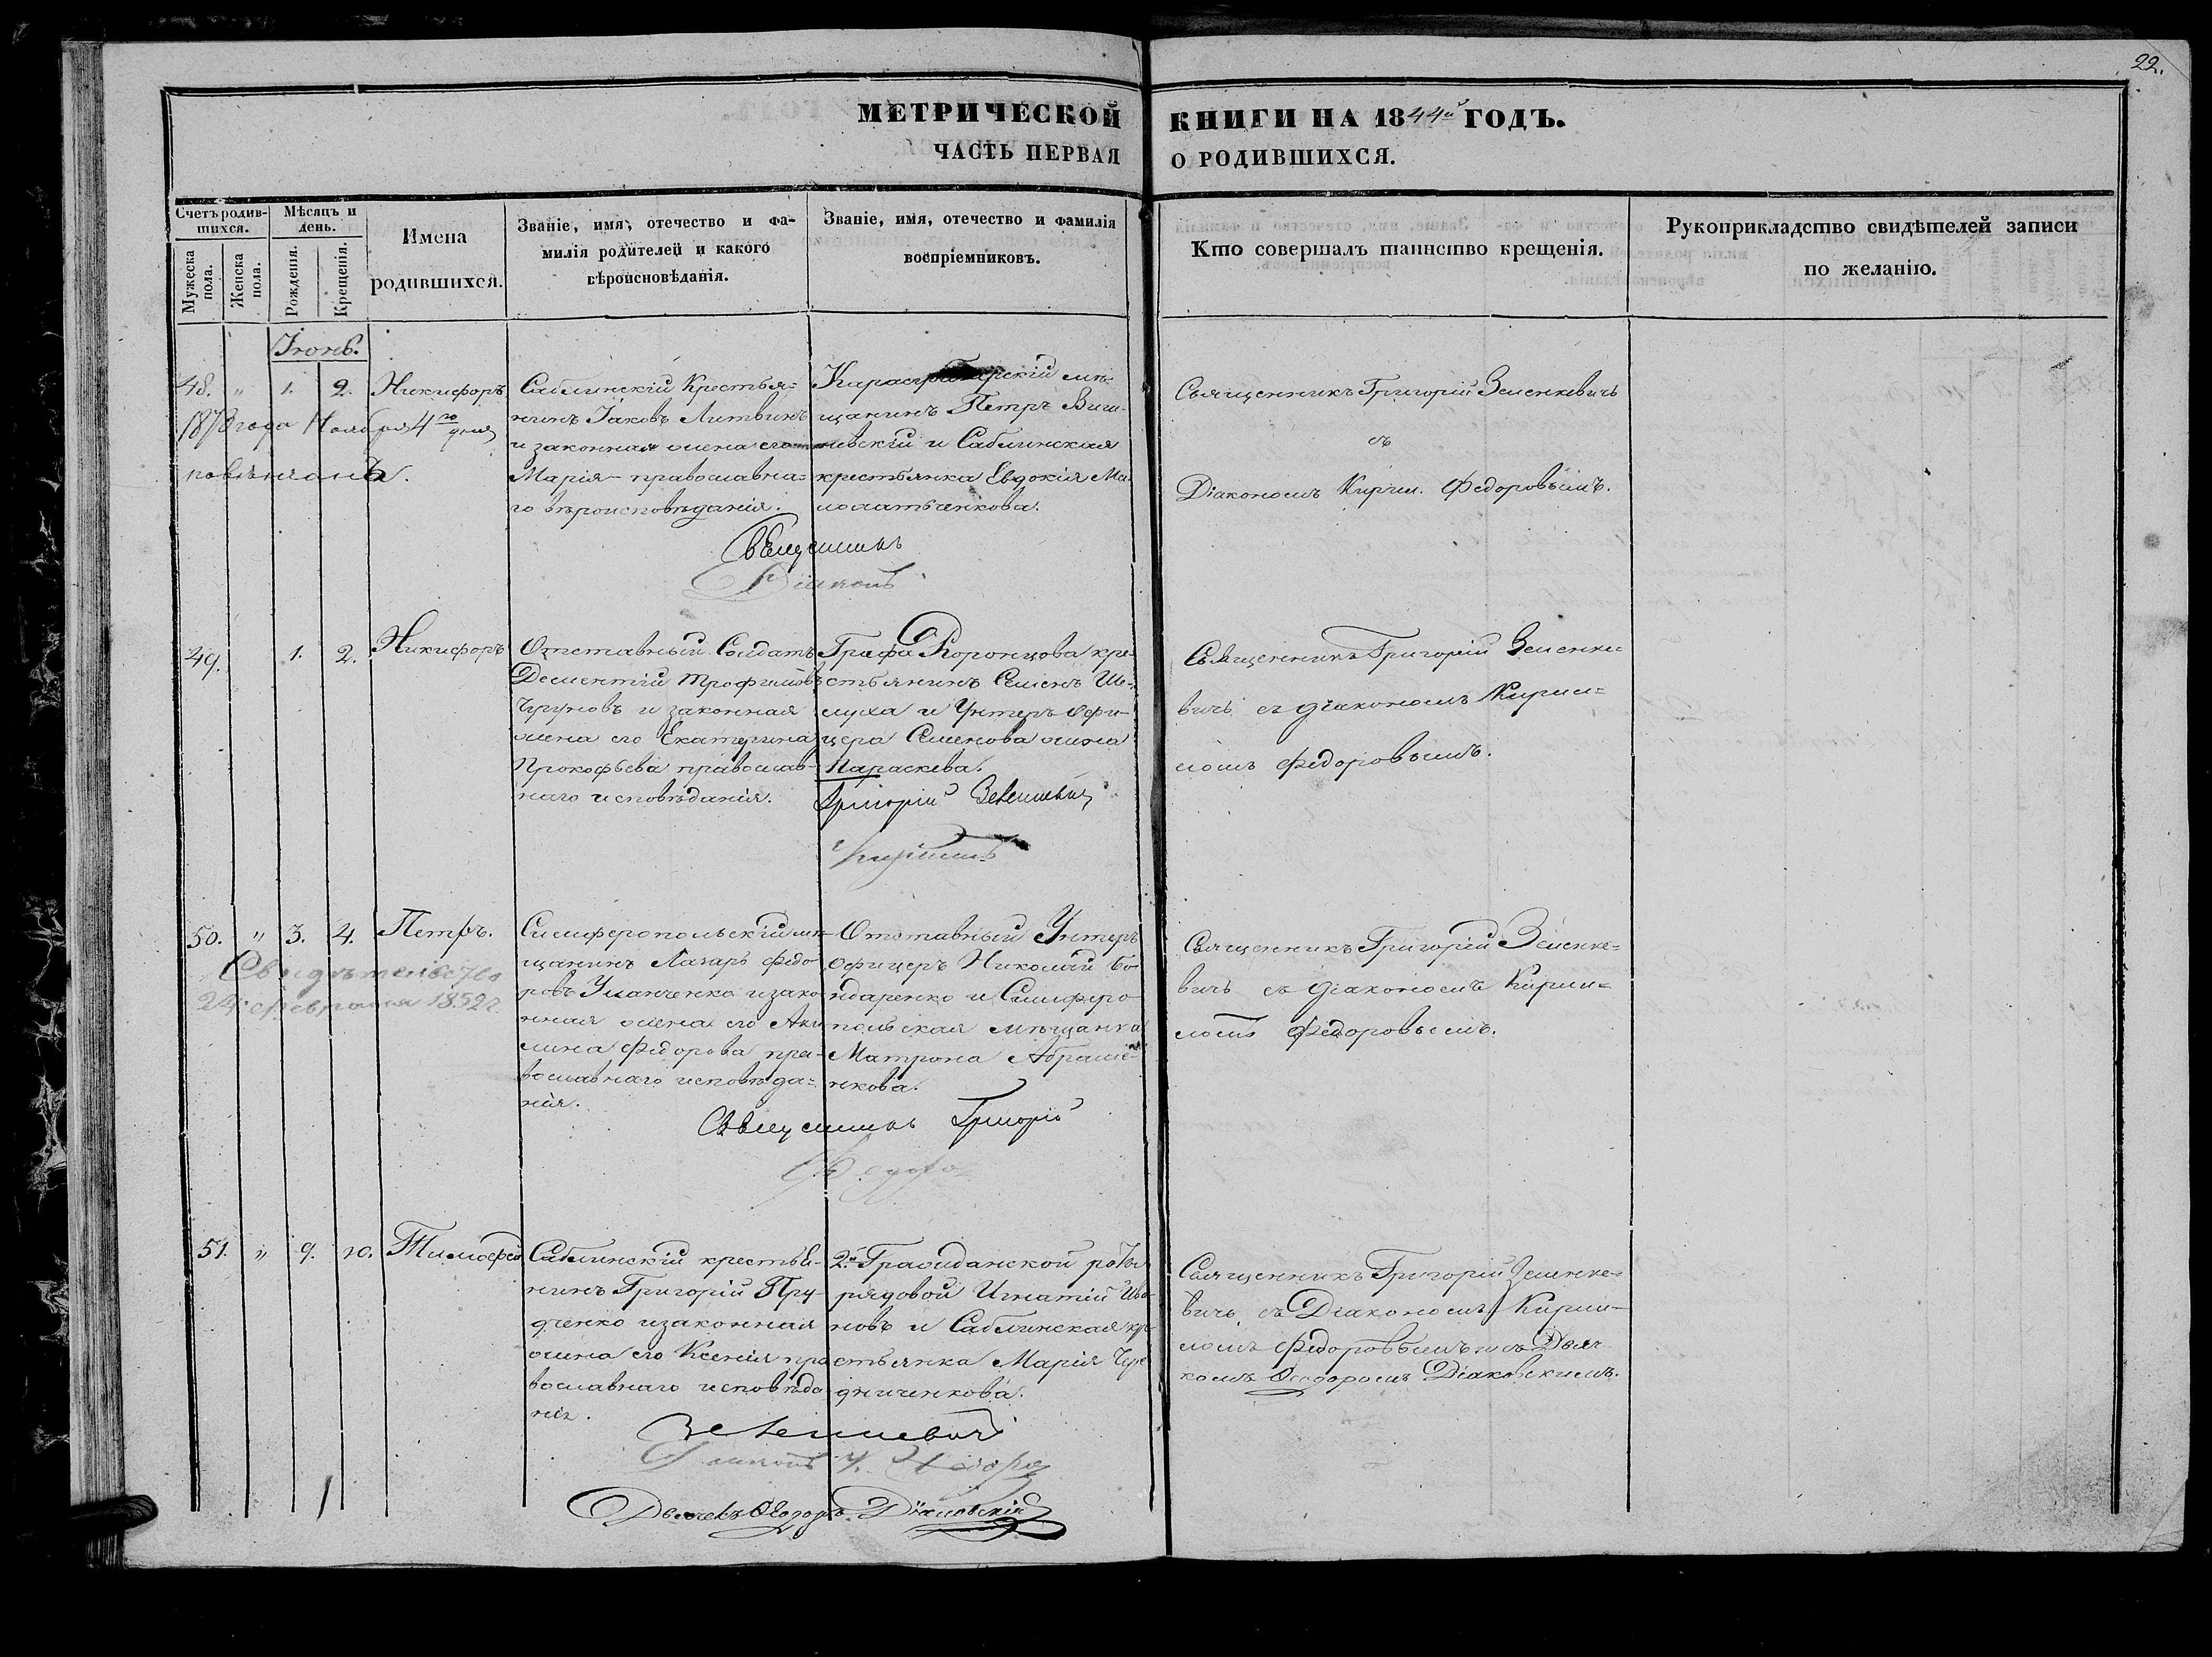 22.
МЕТРИЧЕСКОЙ КНИГИ НА 1844й ГОДЪ.
ЧАСТЬ ПЕРВАЯ О РОДИВШИХСЯ.
Счетъ родив-
шихся.
Мужеска пола.
Женска пола.
Мѣсяцъ и
день.
Рожденія.
Крещенія.
Имена
родившихся.
Званіе, имя, отечество и фа-
милія родителей и какого
вѣроисновѣданія.
Званіе, имя, отечество и фамилія
воспріемниковъ.
Кто совершалъ таинство крещенія.
Рукоприкладство свидѣтелей записи
по желанію.
Іюнь.
48. " 1. 2. Никифоръ
1878 года Ноября 4го дня
повѣнчанъ.
Саблинскій Крестья=
нинъ Іаковъ Литвинъ
и законная жена его
Марія православна=
го вѣроисповѣданія.
Карасубазарскій мѣ-
щанинъ Петръ Виш-
невскій и Саблинская
крестьянка Евдокія Ма-
Священникъ
Діаконъ
Священникъ Григорій Зеленкевичъ
съ
Діакономъ Кирил. Федоровымъ.
49. 1. 2. Никифоръ
Отставный Солдатъ
Дементій Трофимовъ
Чугуновъ и законная
жена его Екатерина
Прокофьева православ-
наго исповѣданія.
Графа Воронцова кре-
стьянинъ Семенъ Ше-
луха и Унтеръ-офи-
цера Семенова жена
Параскева.
Григорій Зеленкевич
Священникъ Григорій Зеленке-
вичъ съ діакономъ Кирил=
ломъ Федоровымъ.
50. " 3. 4. Петръ.
Свидѣтельство
24 февраля 1852 г.
Симферопольскій мѣ-
щанинъ Лазарь Федо-
ровъ Уманченко и зако-
нная жена его Аки-
лина Федорова пра-
вославнаго исповѣда=
нія.
Отставный Унтеръ
Офицеръ Николай Бо-
ндаренко и Симферо-
польская мѣщанка
Матрона Абраме-
нкова.
Священникъ Григорій
Федоро
Священникъ Григорій Зеленке=
вичъ съ діакономъ Кирил=
ломъ Федоровымъ.
51. " 9. 10. Тимофей
Саблинскій крестья-
нинъ Григорій Пру-
дченко и законная
жена его Ксенія пра-
вославнаго исповѣда-
нія.
2й Гражданской роты
рядовой Игнатій Ива-
новъ и Саблинская кре-
стьянка Марія Чере-
дниченкова.
Зеленкевич
Діаконъ К. Федоро
Дьячекъ Ѳеодоръ Діаковскій
Священникъ Григорій Зеленке=
вичъ, съ Діакономъ Кирил-
ломъ Федоровымъ и съ Дьяч-
комъ Ѳеодоромъ Діаковскимъ.